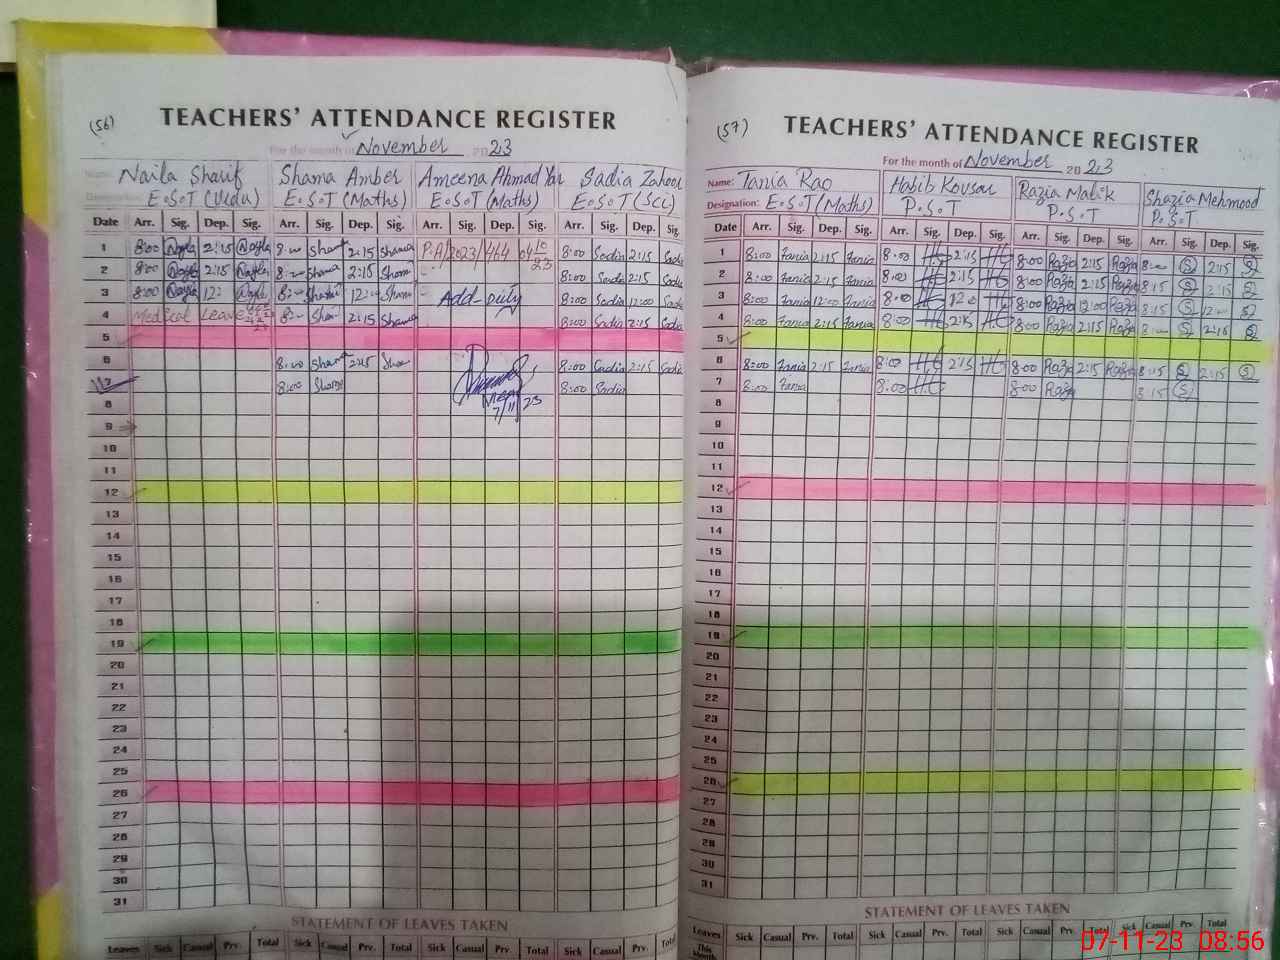 (56)
TEACHERS' ATTENDANCE REGISTER
For the month of November 2023
Naila Sharif Shama Amber Ameena Ahmad Yar Sadia Zahoor
E.S.T (Urdu) E.S.T (Maths) E.S.T (Maths) E.S.T (Sci)
Date Arr. Sig. Dep. Sig. Arr. Sig. Dep. Sig. Arr. Sig. Dep. Sig. Arr. Sig. Dep. Sig.
1 8:00 Nayla 2:15 Nayla 8:00 Sham 2:15 Shama P.A/2023/464 04 10 23 8:00 Sadia 2:15 Sadia
2 8:00 Nayla 2:15 Nayla 8:00 Shama 2:15 Sham 8:00 Sadia 2:15 Sadia
3 8:00 Nayla 12: Nayla 8:00 Shama 12:00 Sham Add-duty 8:00 Sadia 12:00 Sadia
4 Medical Leave 8:00 Sham 2:15 Shama 8:00 Sadia 2:15 Sadia
5
6 8:00 Sham 2:15 Sham 8:00 Sadia 2:15 Sadia
7 8:00 Shama 7/11/23 8:00 Sadia
8
9
10
11
12
13
14
15
16
17
18
19
20
21
22
23
24
25
26
27
28
29
30
31
STATEMENT OF LEAVES TAKEN
Leaves Sick Casual Prv. Total Sick Casual Prv. Total Sick Casual Prv. Total Sick Casual Prv. Total
(57)
TEACHERS' ATTENDANCE REGISTER
For the month of November 2023
Name: Tania Rao Habib Kousar Razia Malik Shazia Mehmood
Designation: E.S.T (Maths) P.S.T P.S.T P.S.T
Date Arr. Sig. Dep. Sig. Arr. Sig. Dep. Sig. Arr. Sig. Dep. Sig. Arr. Sig. Dep. Sig.
1 8:00 Tania 2:15 Tania 8:00 HK 2:15 HK 8:00 Razia 2:15 Razia 8:00 S 2:15 S
2 8:00 Tania 2:15 Tania 8:00 HK 2:15 HK 8:00 Razia 2:15 Razia 8:15 S 2:15 S
3 8:00 Tania 12:00 Tania 8:00 HK 12:0 HK 8:00 Razia 12:00 Razia 8:15 S 12:00 S
4 8:00 Tania 2:15 Tania 8:00 HK 2:15 HK 8:00 Razia 2:15 Razia 8:00 S 2:15 S
5
6 8:00 Tania 2:15 Tania 8:00 HK 2:15 HK 8:00 Razia 2:15 Razia 8:15 S 2:15 S
7 8:00 Tania 8:00 HK 8:00 Razia 8:15 S
8
9
10
11
12
13
14
15
16
17
18
19
20
21
22
23
24
25
26
27
28
29
30
31
STATEMENT OF LEAVES TAKEN
Leaves Sick Casual Prv. Total Sick Casual Prv. Total Sick Casual Prv. Total Sick Casual Prv. Total
This Month
07-11-23 08:56